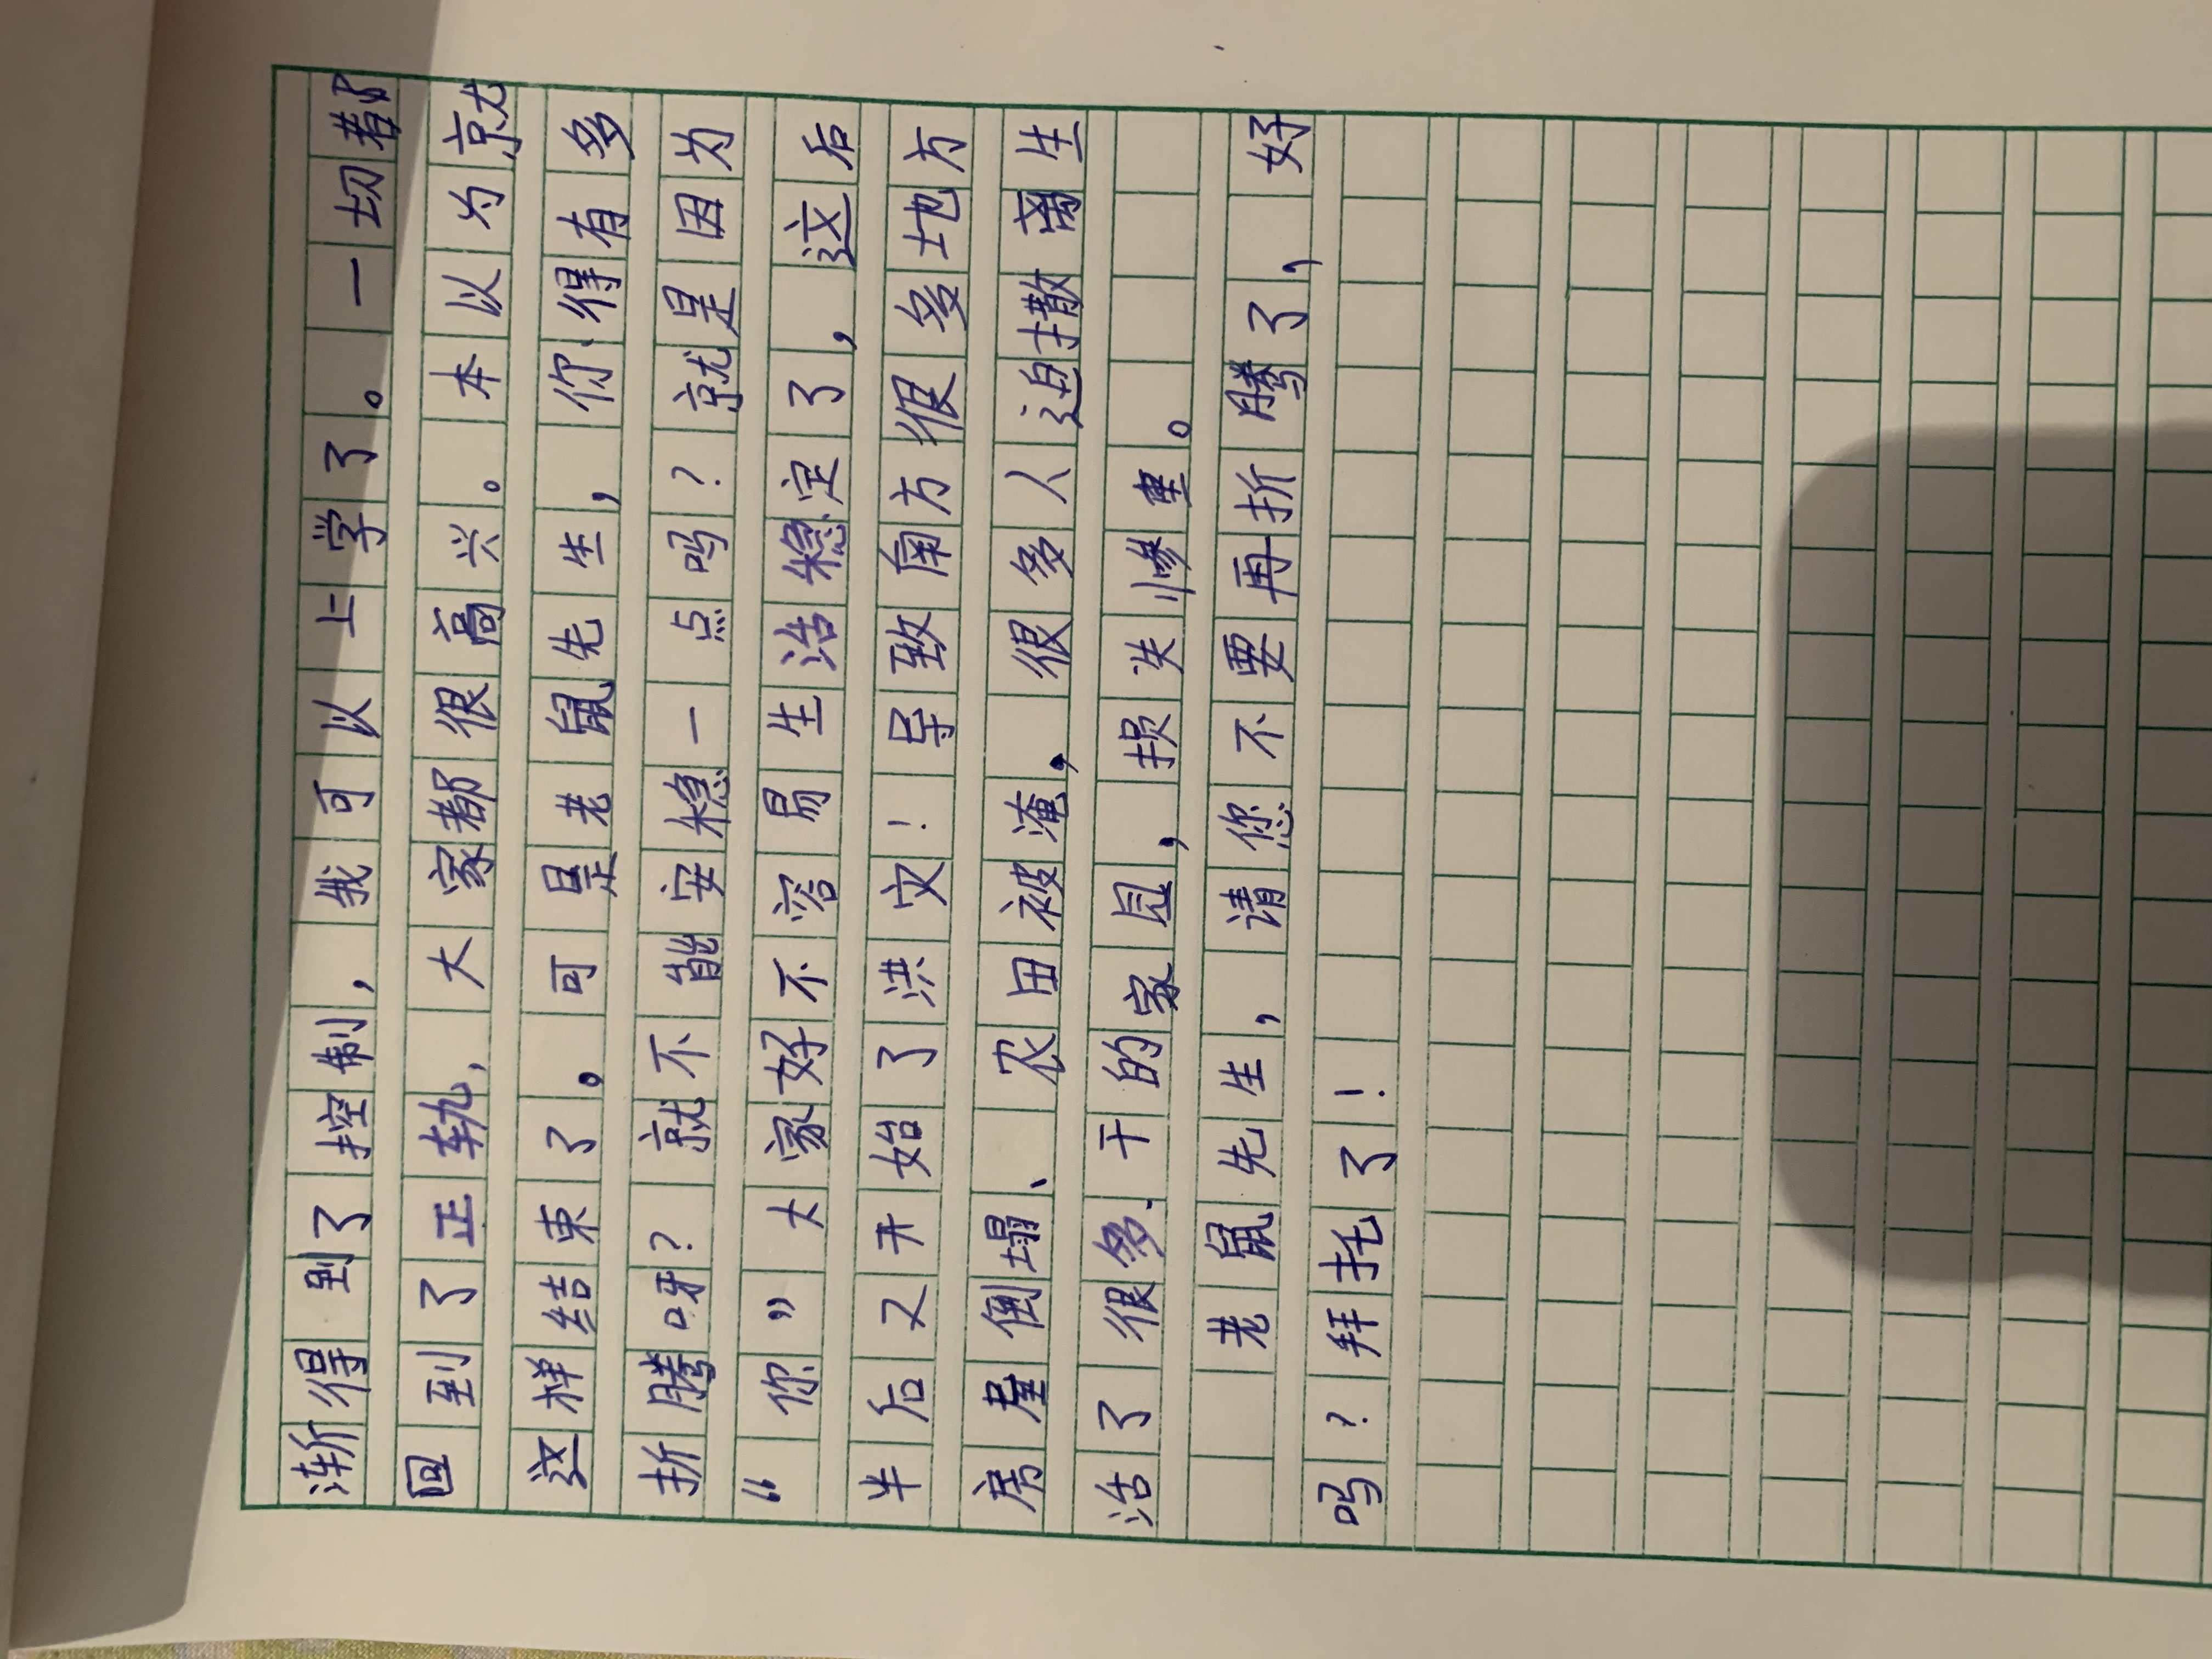 渐得到了控制，我可以上学了。一切都
回到了正轨，大家都很高兴。本以为就
这样结束了。可是老鼠先生，你得有多
折腾呀？就不能安稳一点吗？就是因为
“你”大家好不容易生活稳定了，这后
半后又开始了洪灾！导致南方很多地方
房屋倒塌、农田被淹，很多人迫撒离生
活了很多.干的家园，损失惨重。
老鼠先生，请您不要再折腾了，好
吗？拜托了！